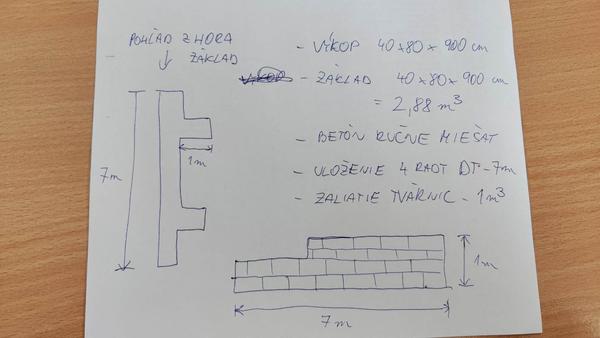 POHĽAD ZHORA
ZÁKLAD
7m
1m
- VÝKOP 40x80x900 cm
- ZÁKLAD 40x80x900 cm
= 2,88 m³
- BETÓN RUČNE MIEŠAŤ
- ULOŽENIE 4 RADY DT - 7m
- ZALIATIE TVÁRNIC - 1m³
1m
7m